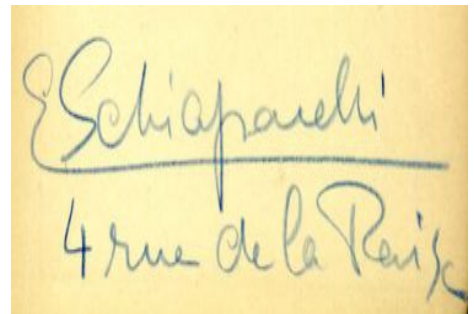 E Schiaparelli
4 rue de la Paix